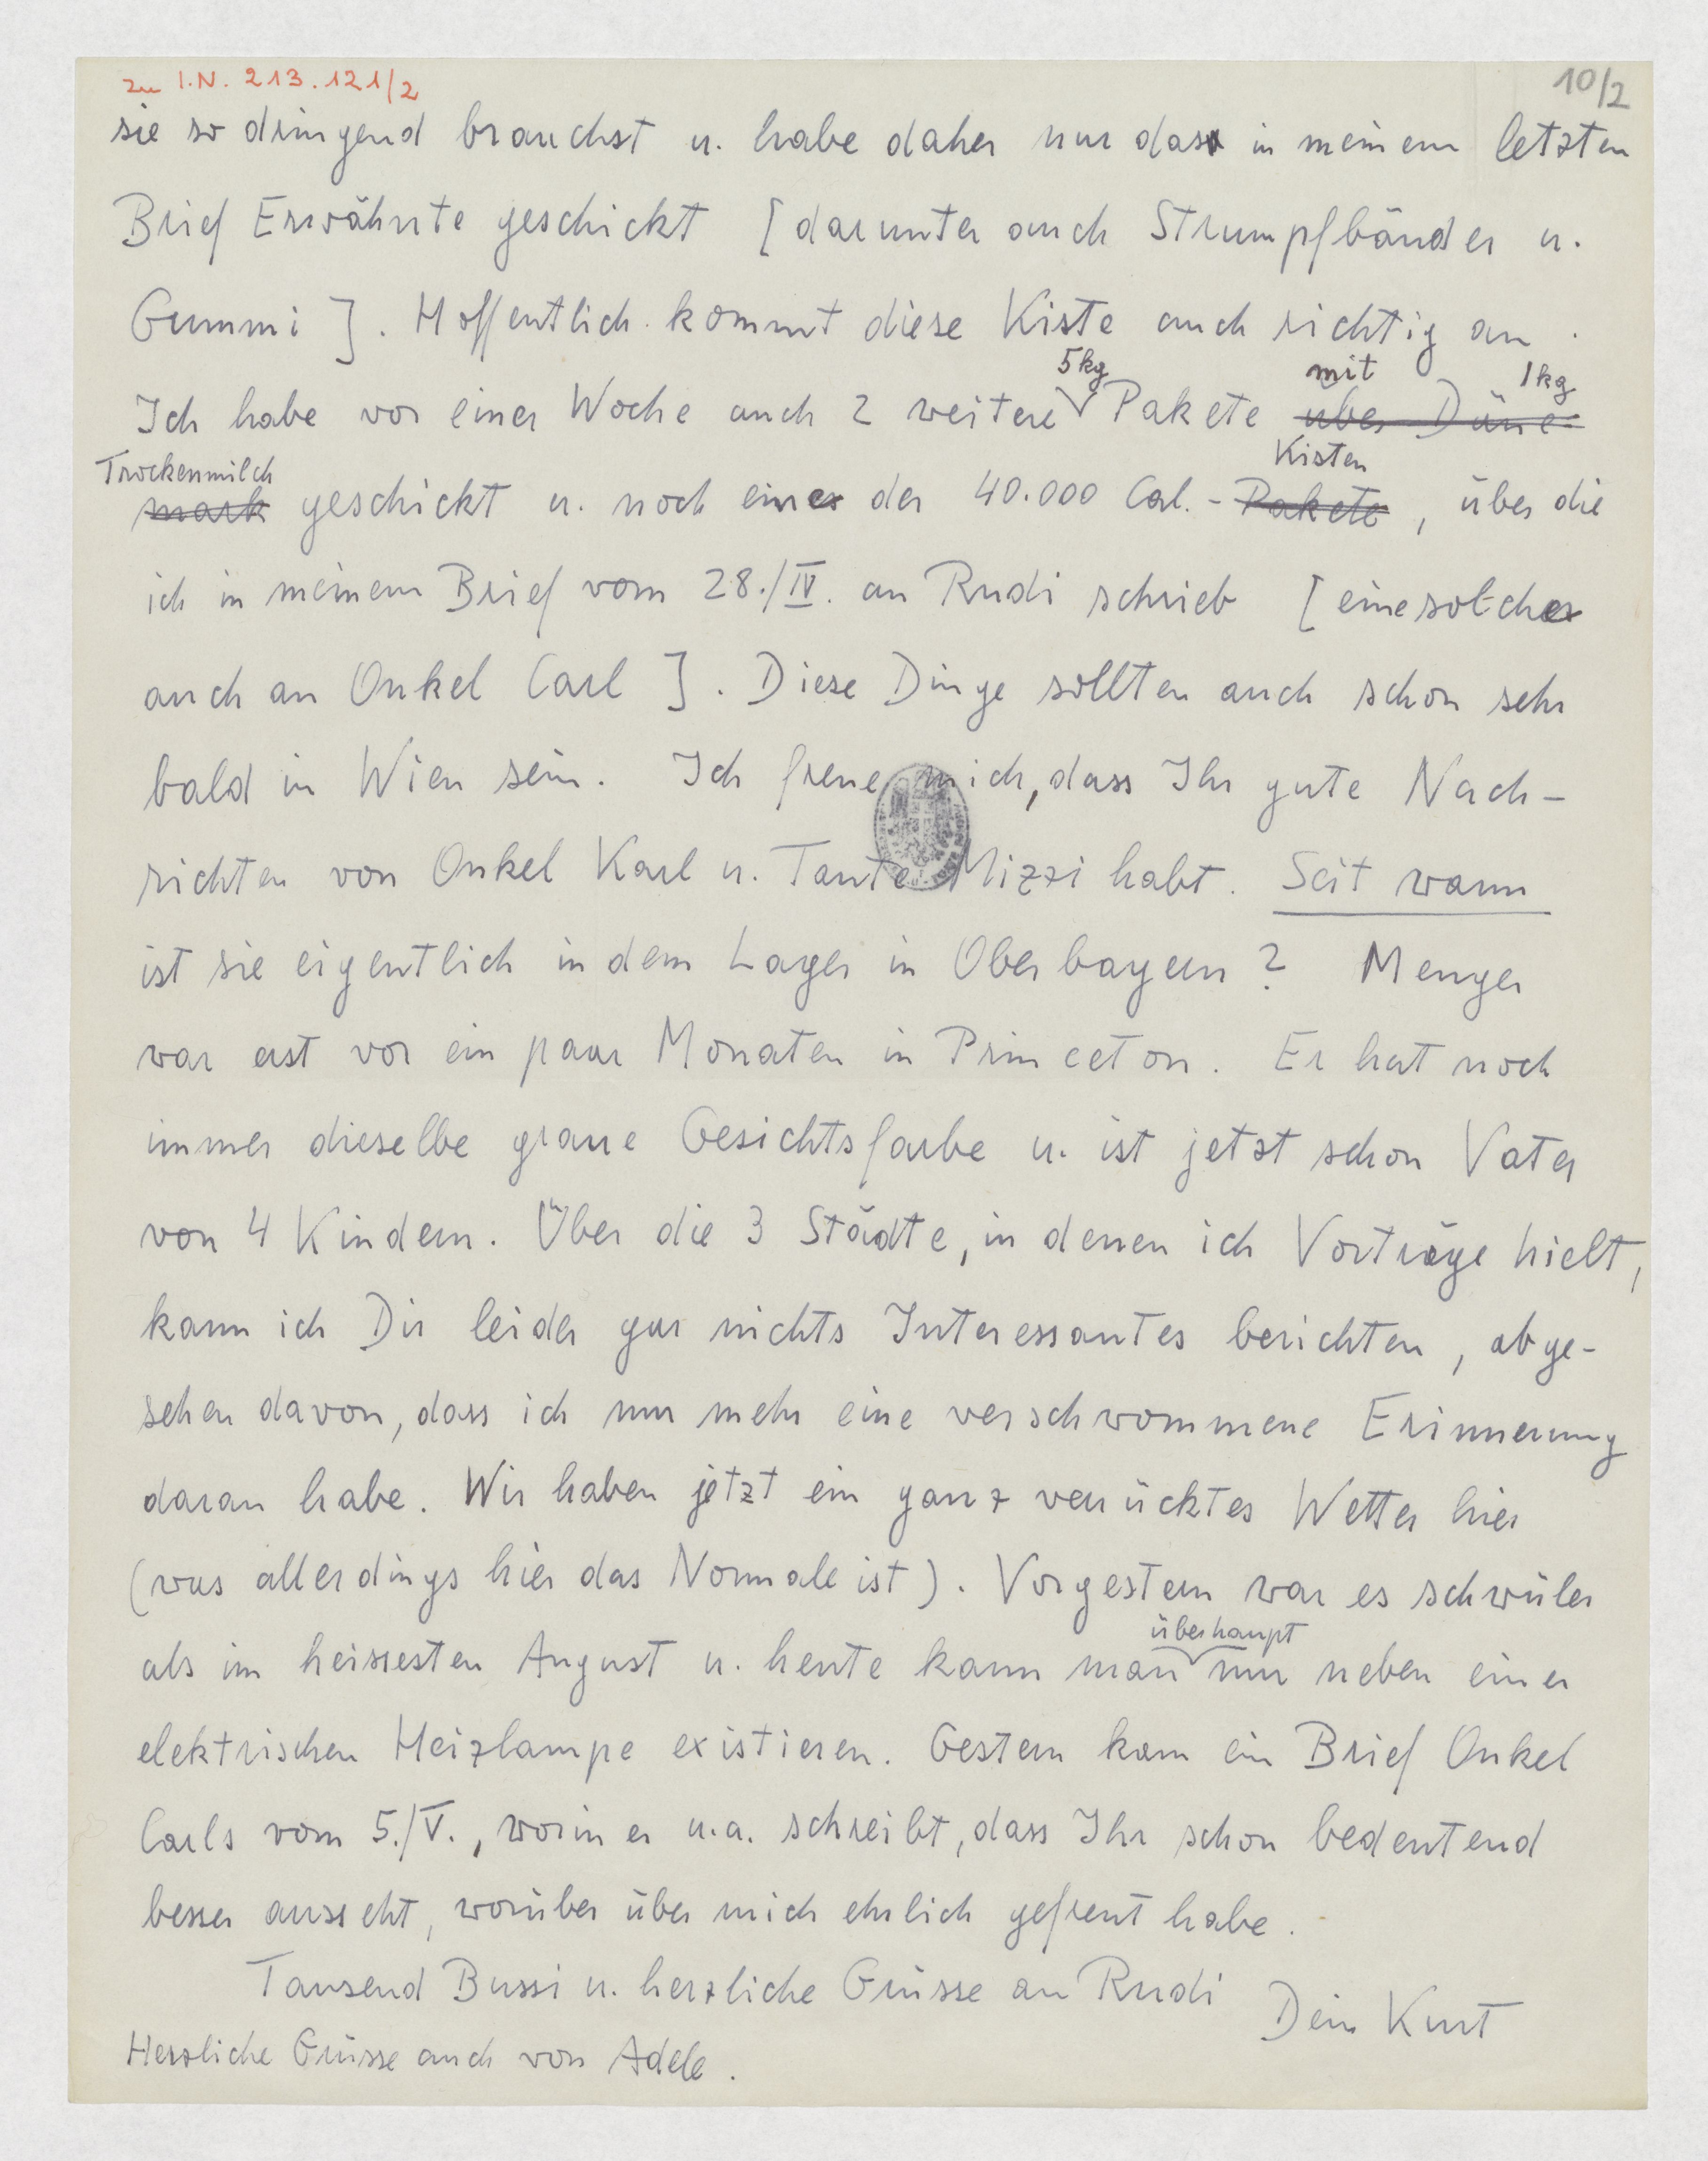 zu I.N. 213.121/2
10/2
sie so dringend brauchst u. habe daher nur das in meinem letzten
Brief Erwähnte geschickt [darunter auch Strumpfbänder u.
Gummi]. Hoffentlich kommt diese Kiste auch richtig an.
5kg mit 1kg
Ich habe vor einer Woche auch 2 weitere Pakete über Däne-
Trockenmilch Kisten
mark geschickt u. noch eine der 40.000 Cal.-Pakete, über die
ich in meinem Brief vom 28./IV. an Rudi schrieb [eine solche
auch an Onkel Carl]. Diese Dinge sollten auch schon sehr
bald in Wien sein. Ich freue mich, dass Ihr gute Nach-
richten von Onkel Karl u. Tante Mizzi habt. Seit wann
ist sie eigentlich in dem Lager in Oberbayern? Menger
war erst vor ein paar Monaten in Princeton. Er hat noch
immer dieselbe graue Gesichtsfarbe u. ist jetzt schon Vater
von 4 Kindern. Über die 3 Städte, in denen ich Vorträge hielt,
kann ich Dir leider gar nichts Interessantes berichten, abge-
sehen davon, dass ich nur mehr eine verschwommene Erinnerung
daran habe. Wir haben jetzt ein ganz verrücktes Wetter hier
(was allerdings hier das Normale ist). Vorgestern war es schwüler
überhaupt
als im heissesten August u. heute kann man nur neben einer
elektrischen Heizlampe existieren. Gestern kam ein Brief Onkel
Carls vom 5./V., worin er u.a. schreibt, dass Ihr schon bedeutend
besser ausseht, worüber über mich ehrlich gefreut habe.
Tausend Bussi u. herzliche Grüsse an Rudi
Dein Kurt
Herzliche Grüsse auch von Adele.